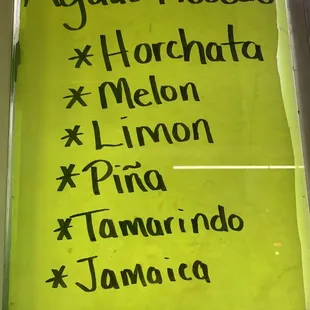 * Horchata
* Melon
* Limon
* Piña
* Tamarindo
* Jamaica